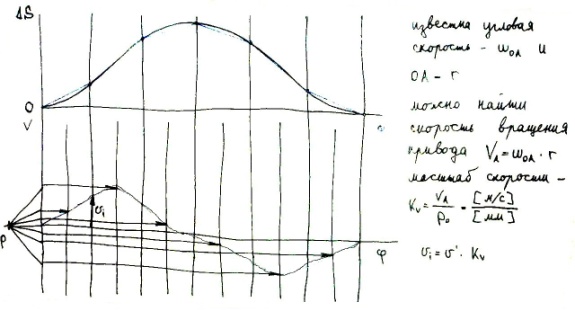 ΔS
0
V
P
υi
φ
известна угловая
скорость - ω_OA и
OA - r
можно найти
скорость вращения
привода V_A = ω_OA · r
масштаб скорости -
K_v = V_A / P_o = [м/с] / [мм]
υi = υ' · K_v